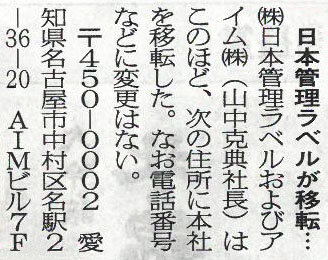 日本管理ラベルが移転…
㈱日本管理ラベルおよびア
イム㈱（山中克典社長）は
このほど、次の住所に本社
を移転した。なお電話番号
などに変更はない。
〒450-0002　愛
知県名古屋市中村区名駅2
-36-20　AIMビル7F